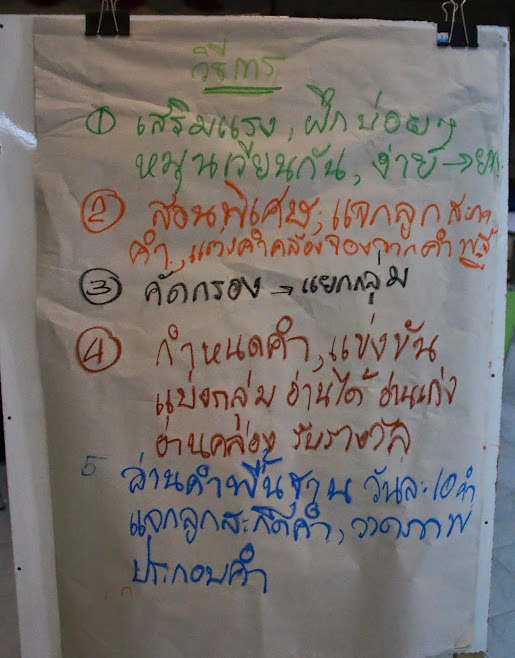 วิธีการ
① เสริมแรง, ฝึกบ่อยๆ
หมุนเวียนกัน, ง่าย→ยาก
② สอนพิเศษ, แจกลูกสะกด
คำ, แต่งคำคล้องจองจากคำ
③ คัดกรอง → แยกกลุ่ม
④ กำหนดคำ, แข่งขัน
แบ่งกลุ่ม อ่านได้ อ่านเก่ง
อ่านคล่อง รับรางวัล
5 อ่านคำพื้นฐาน วันละ 10 คำ
แจกลูกสะกดคำ, วาดภาพ
ประกอบคำ